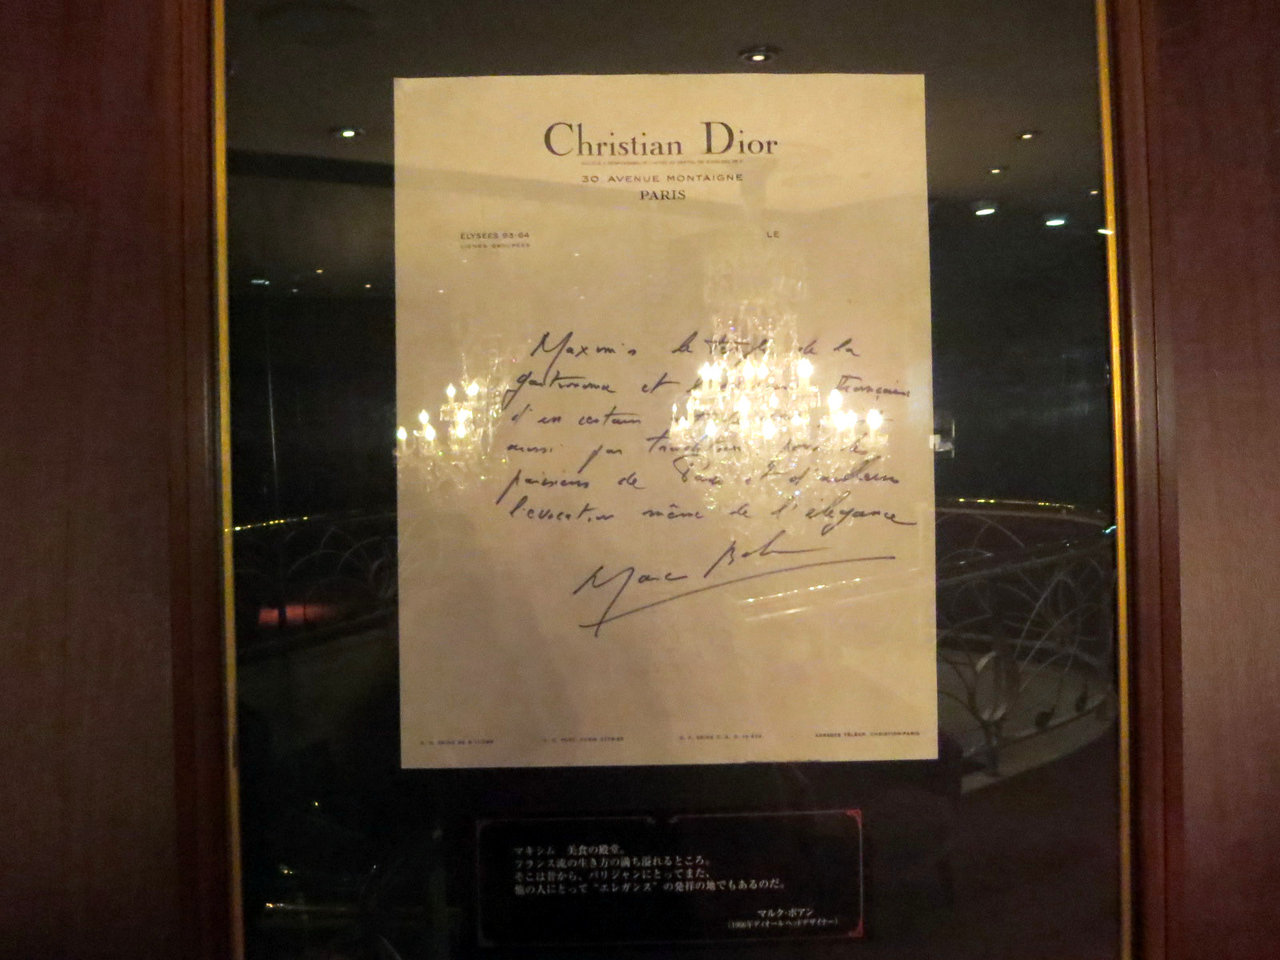 Christian Dior
30 AVENUE MONTAIGNE
PARIS
ELYSEES 93-64
LIGNES GROUPÉES
LE
Maxim's le temple de la
gastronomie et français
d'un certain
aussi par tradition pour le
parisiens de Paris et d'ailleurs
l'évocation même de l'élégance
Marc Bohan
マキシム 美食の殿堂。
フランス流の生き方の満ち溢れるところ。
そこは昔から、パリジャンにとってまた、
他の人にとって“エレガンス”の発祥の地でもあるのだ。
マルク・ボアン
ディオールヘッドデザイナー)